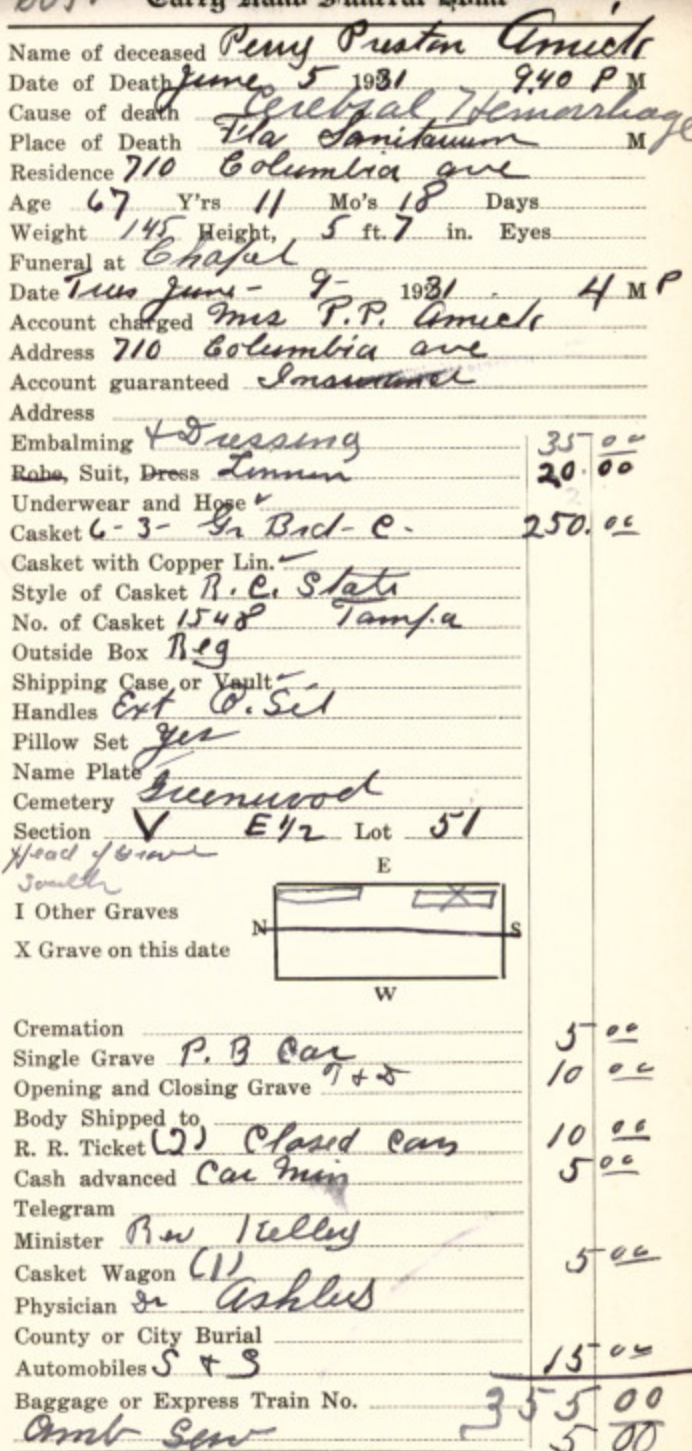 Carey Hand Funeral Home
Name of deceased Perry Preston Amick
Date of Death June 5 1931 9.40 P M
Cause of death Cerebral Hemorrhage
Place of Death Fla Sanitarium M
Residence 710 Columbia ave
Age 67 Y'rs 11 Mo's 18 Days
Weight 145 Height, 5 ft. 7 in. Eyes
Funeral at Chapel
Date Tues June - 9 - 1931 4 M P
Account charged Mrs P.P. Amick
Address 710 Columbia ave
Account guaranteed Insurance
Address
Embalming + Dressing 35 00
Robe, Suit, Dress Linnen 20.00
Underwear and Hose ✓
Casket 6-3- Gr Brd- C. 250.00
Casket with Copper Lin. ✓
Style of Casket R.C. State
No. of Casket 1548 Tampa
Outside Box Reg
Shipping Case or Vault ✓
Handles Ext O. Sil
Pillow Set Yes
Name Plate
Cemetery Greenwood
Section V E 1/2 Lot 51
Head of Grave
South
E
I Other Graves
N S
X Grave on this date
W
Cremation 5 00
Single Grave P. B Car
Opening and Closing Grave T & D 10 00
Body Shipped to
R. R. Ticket (2) Closed Cars 10 00
Cash advanced Car Min 5 00
Telegram
Minister Rev Kelley
Casket Wagon (1) 5 00
Physician Dr
County or City Burial
Automobiles S & S 15 00
Baggage or Express Train No. 355 00
Amb Serv 5 00